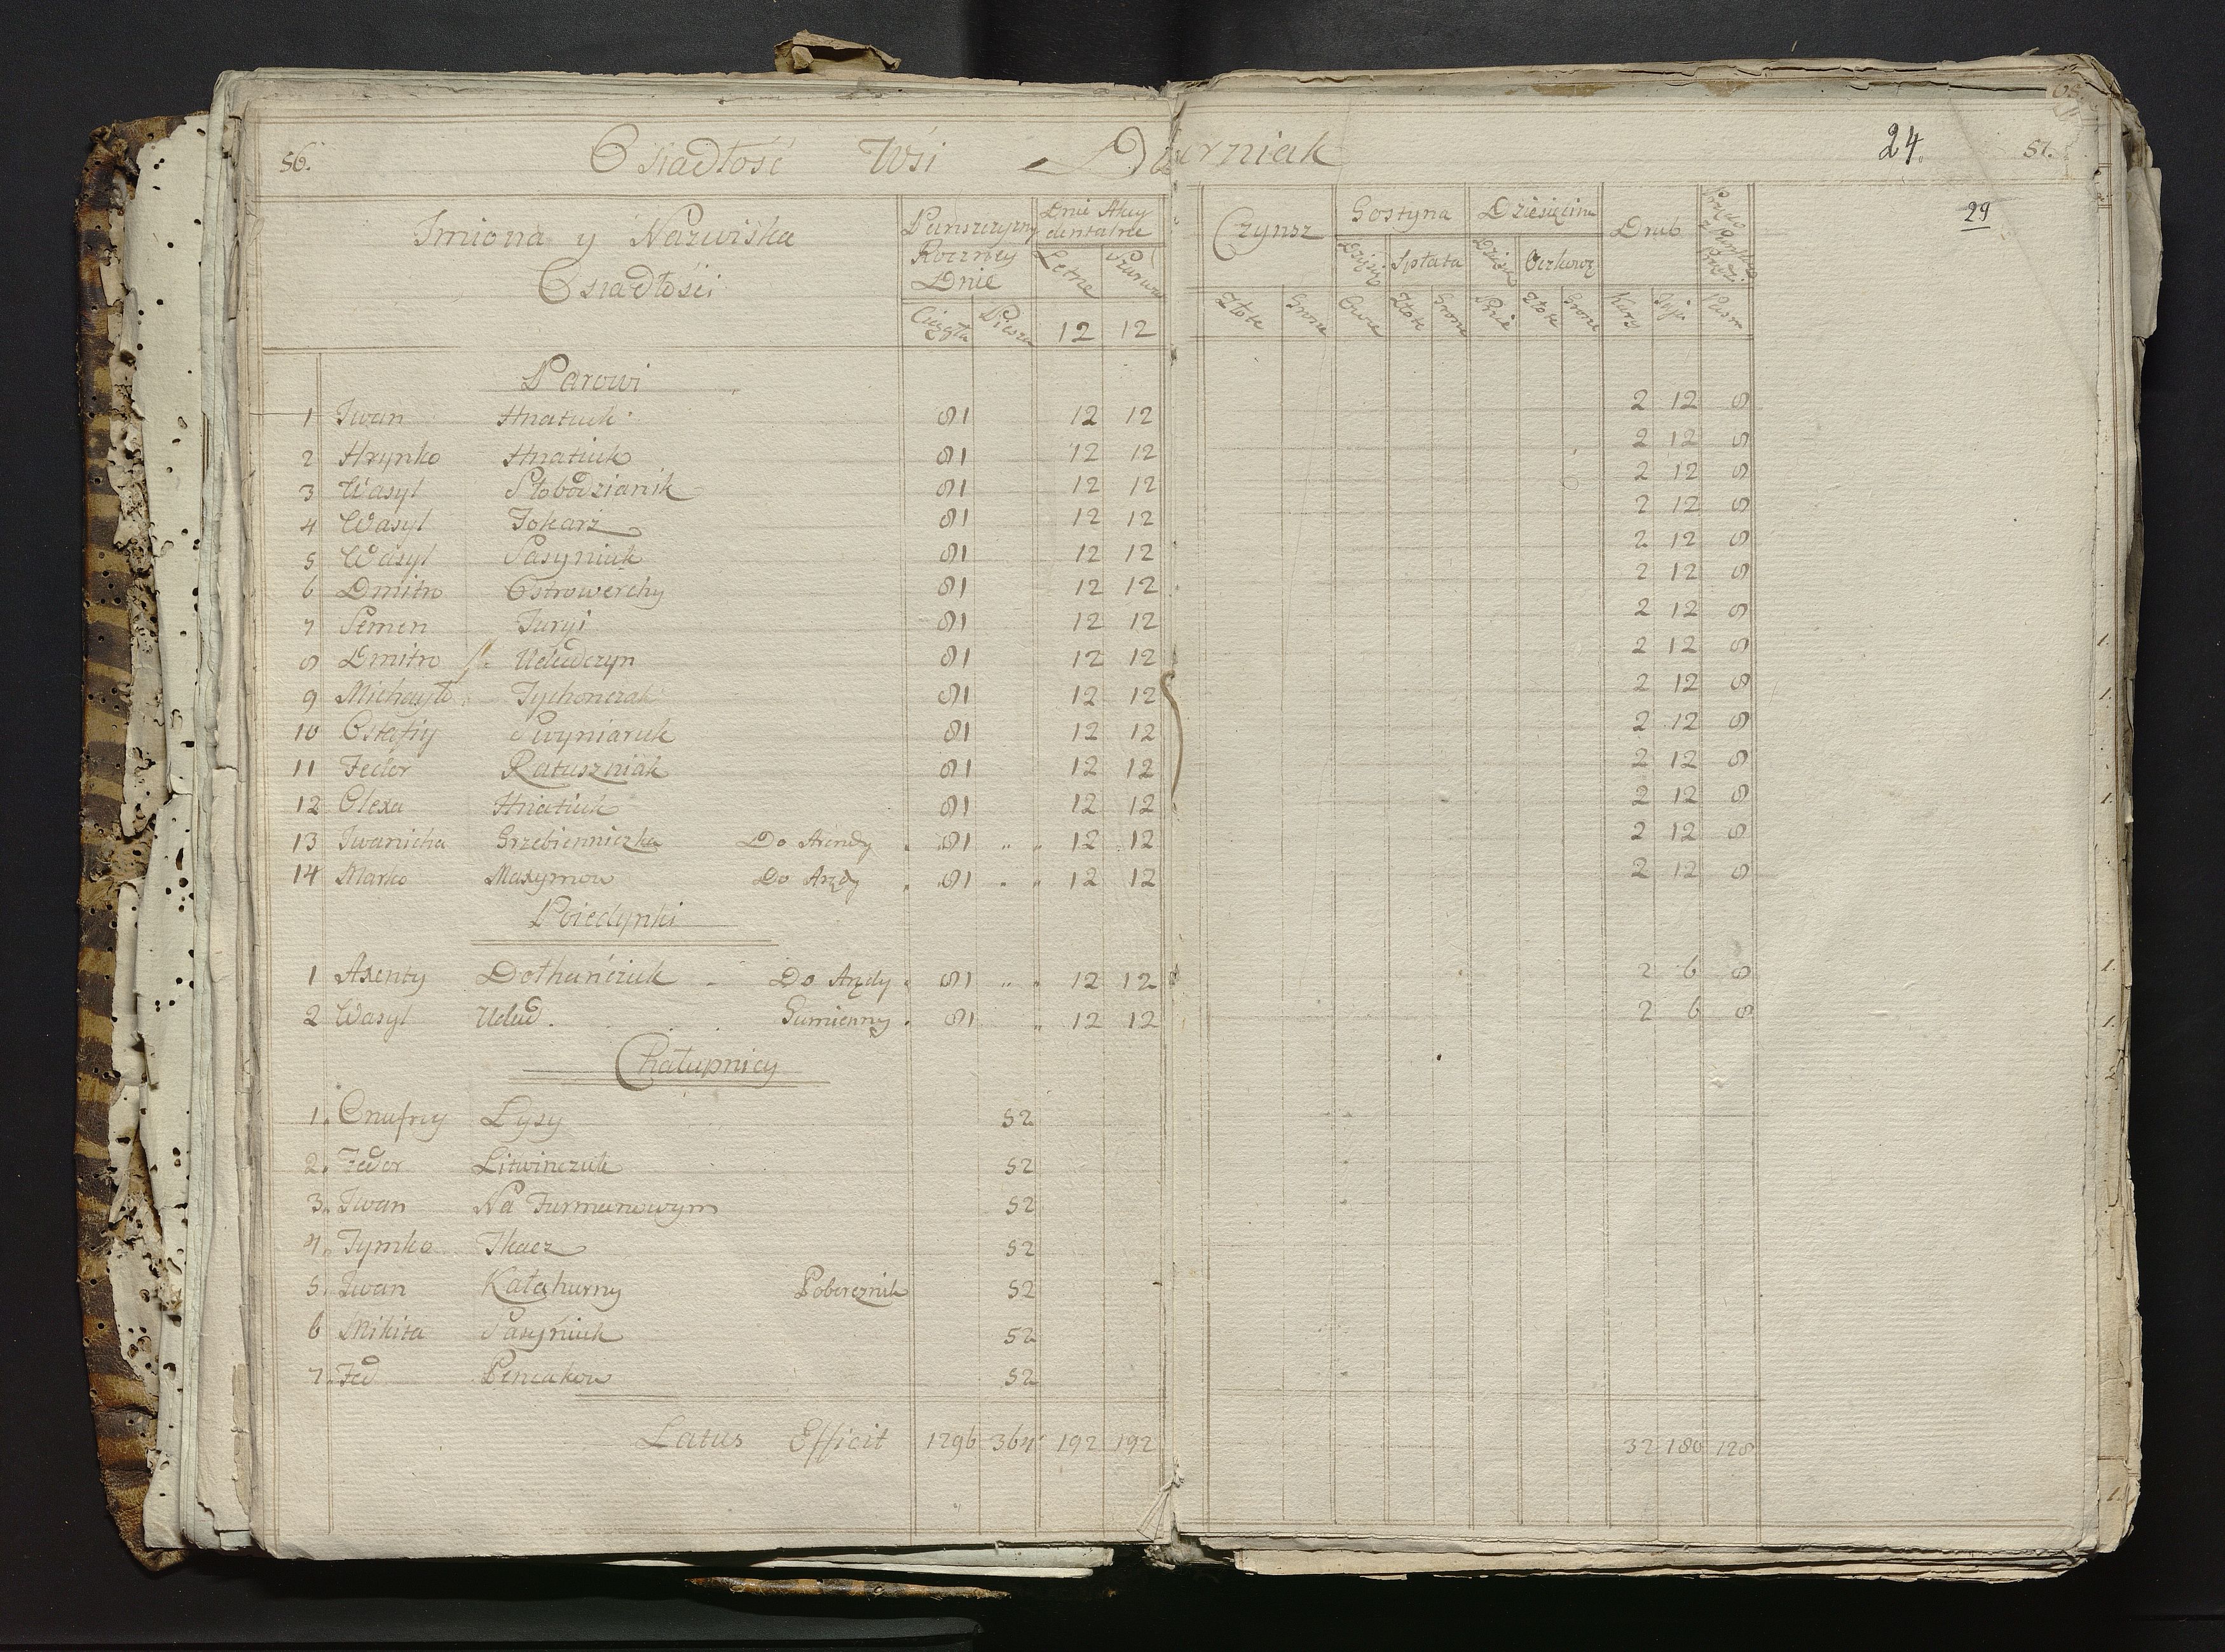 56. Osiadłość Wsi Dwerniak 24. 57.
29
Imiona y Nazwiska Osiadłości
Panszczyzny Roczney Dnie Dnie Akcydentalne
Letne
Ciągła Piesza 12 12
Czynsz Gostyna Dziesięcina Drub
Spłata Oczkowe
Złote Grosze Owce Złote Grosze Pnie Złote Grosze Kury Jaja Pasm
Parowi
1 Iwan Hnatiuk 81 12 12 2 12 8
2 Hrynko Hnatiuk 81 12 12 2 12 8
3 Wasyl Słobodzianik 81 12 12 2 12 8
4 Wasyl Tokarz 81 12 12 2 12 8
5 Wasyl Sasyniuk 81 12 12 2 12 8
6 Dmitro Ostrowerchy 81 12 12 2 12 8
7 Semen Juryi 81 12 12 2 12 8
8 Dmitro Ududczyn 81 12 12 2 12 8
9 Michayło Tychonczak 81 12 12 2 12 8
10 Ostafiy Swyniaruk 81 12 12 2 12 8
11 Fedor Ratuszniak 81 12 12 2 12 8
12 Olexa Hnatiuk 81 12 12 2 12 8
13 Iwanicha Grzebienniczka Do Arendy 81 12 12 2 12 8
14 Marko Maxymow Do Arędy 81 12 12 2 12 8
Poiedynki
1 Axenty Dołhanczuk Do Arędy 81 12 12 2 6 8
2 Wasyl Udud Gumienny 81 12 12 2 6 8
Chałupnicy
1. Onufrey Łysy 52
2. Fedor Litwinczuk 52
3. Iwan Na Furmanowym 52
4. Tymko Tkacz 52
5. Iwan Kałahurny Pobereznik 52
6 Mikita Sasyniuk 52
7. Fed Peniakow 52
Latus Efficit 1296 364 192 192 32 180 128